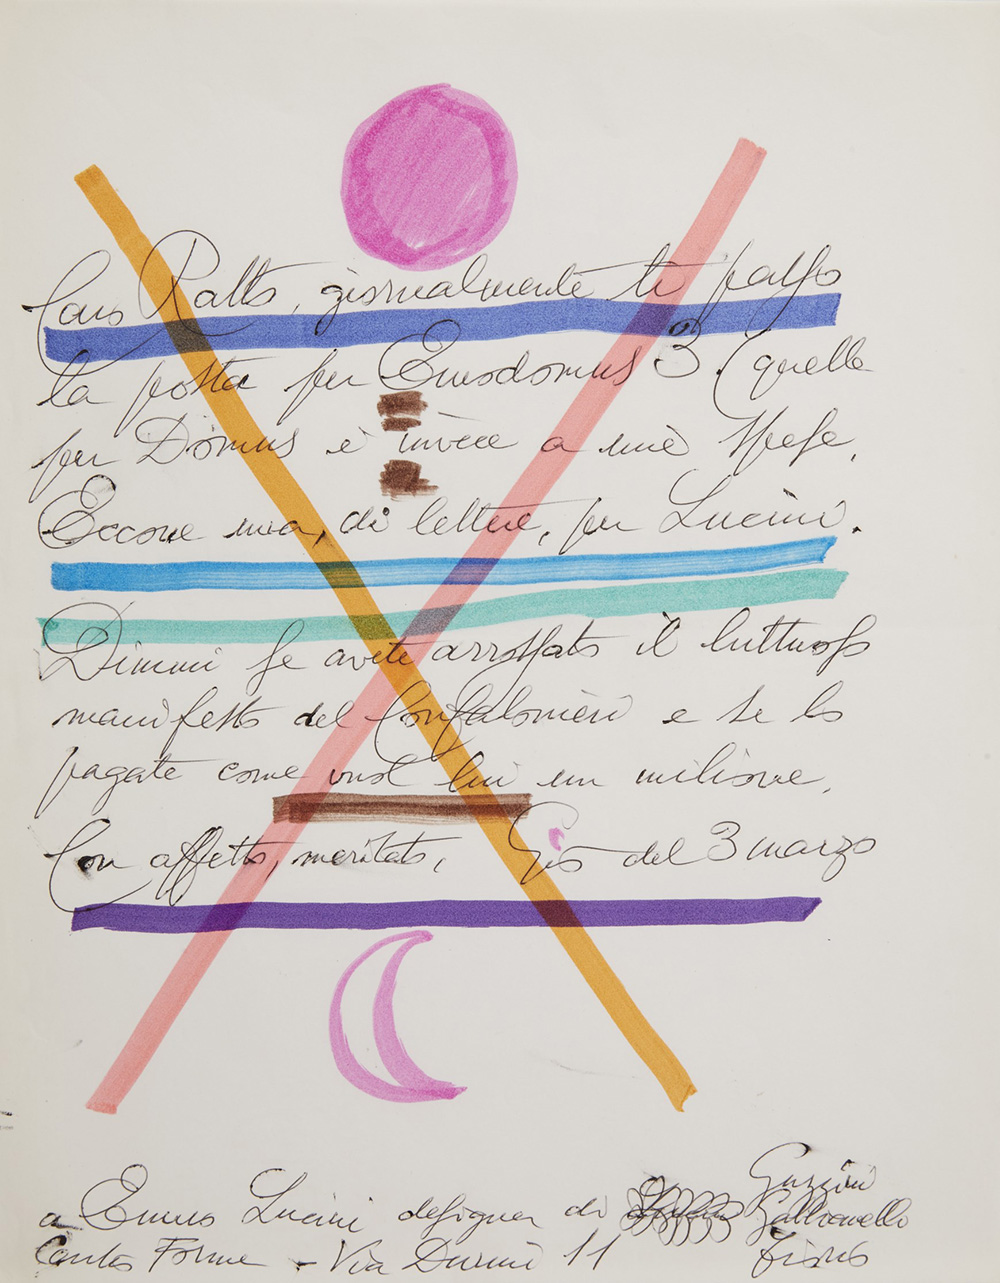 Caro Ratto, giornalmente ti passo
la posta per Eurodomus 3. (quella
per Domus è invece a mie spese.
Eccone una, di lettere, per Lucini.
Dimmi se avete arrossato il luttuoso
manifesto del Confalonieri e se lo
pagate come vuol lui un milione.
Con affetto, meritato, Gio del 3 marzo
a Ennio Lucini designer di Guzzini
Gabbianello
Centro Forme - Via Durini 11